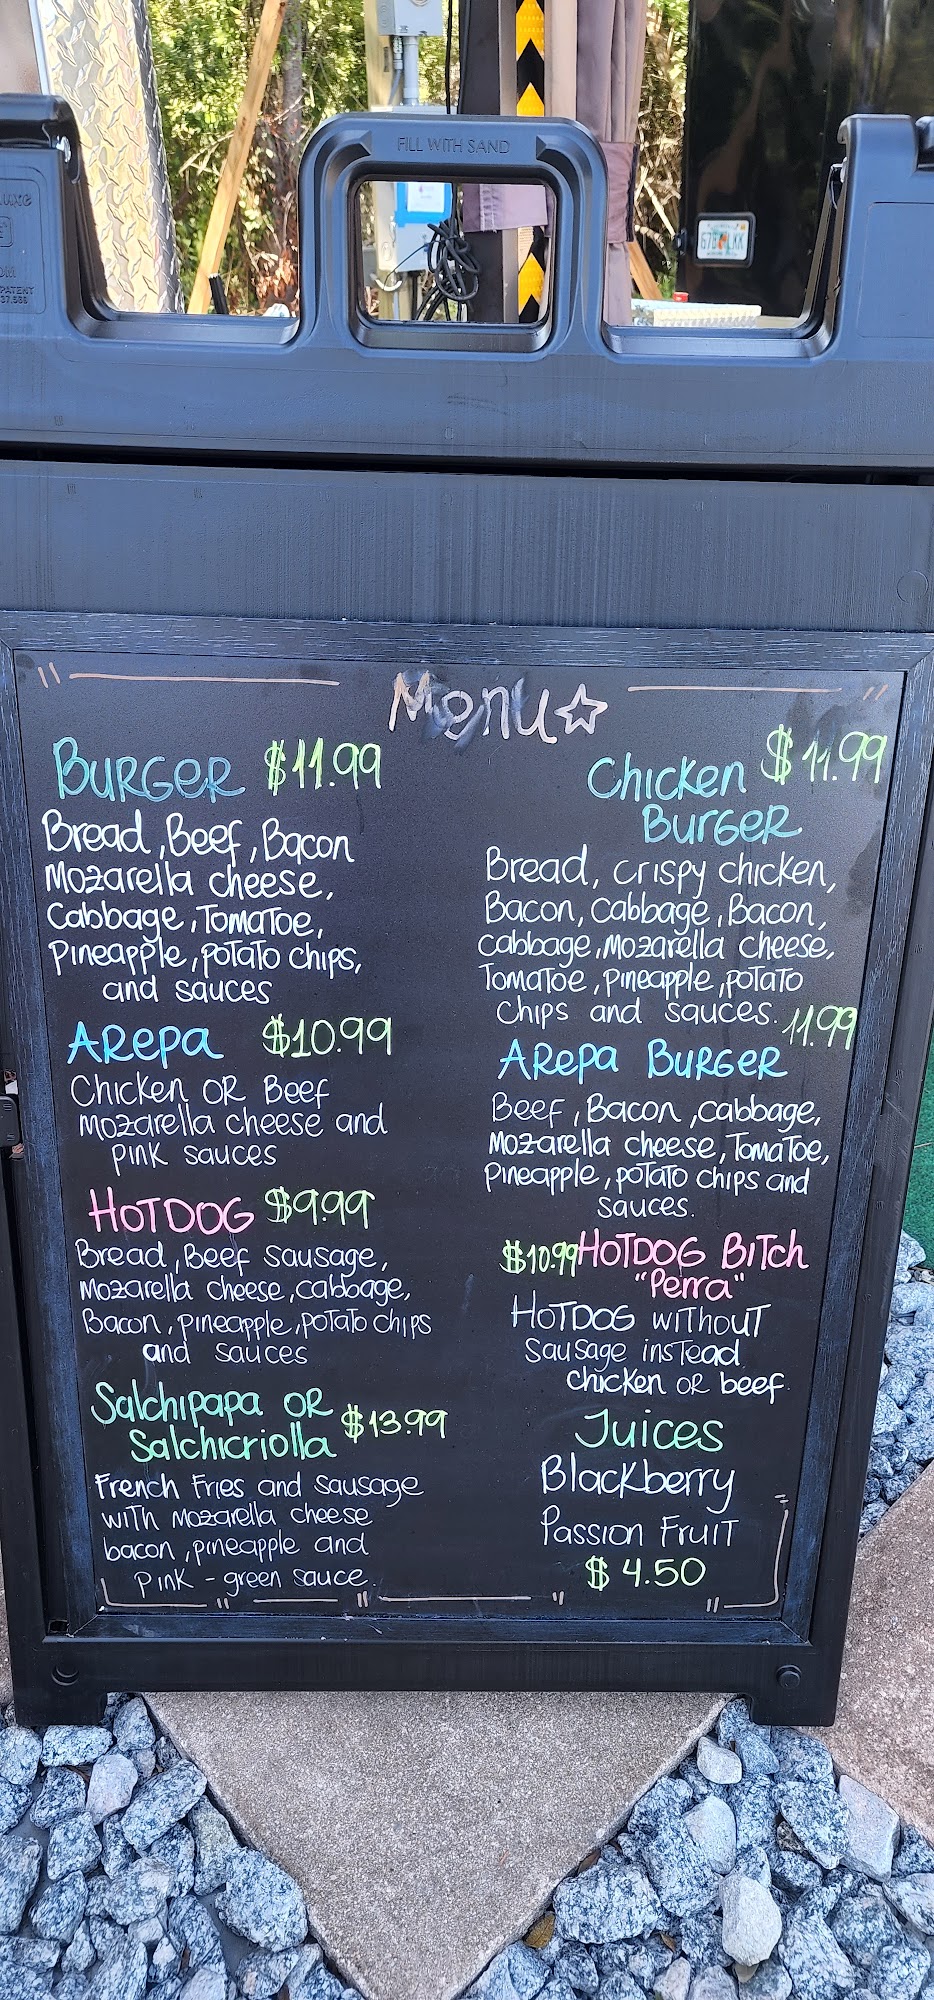 FILL WITH SAND
PATENT
Menu
BURGER $11.99
Bread, Beef, Bacon
Mozarella cheese,
Cabbage, Tomatoe,
Pineapple, potato chips,
and sauces
Arepa $10.99
Chicken or Beef
Mozarella cheese and
pink sauces
HOTDOG $9.99
Bread, Beef sausage,
Mozarella cheese, cabbage,
Bacon, pineapple, potato chips
and sauces
Salchipapa or
Salchicriolla $13.99
French Fries and sausage
with mozarella cheese
bacon, pineapple and
pink - green sauce.
Chicken $11.99
Burger
Bread, crispy chicken,
Bacon, cabbage, Bacon,
cabbage, mozarella cheese,
Tomatoe, pineapple, potato
chips and sauces.
11.99
Arepa Burger
Beef, Bacon, cabbage,
Mozarella cheese, Tomatoe,
Pineapple, potato chips and
sauces.
$10.99 HOTDOG BITch
"Perra"
HOTDOG without
sausage instead
chicken or beef.
Juices
Blackberry
Passion Fruit
$4.50